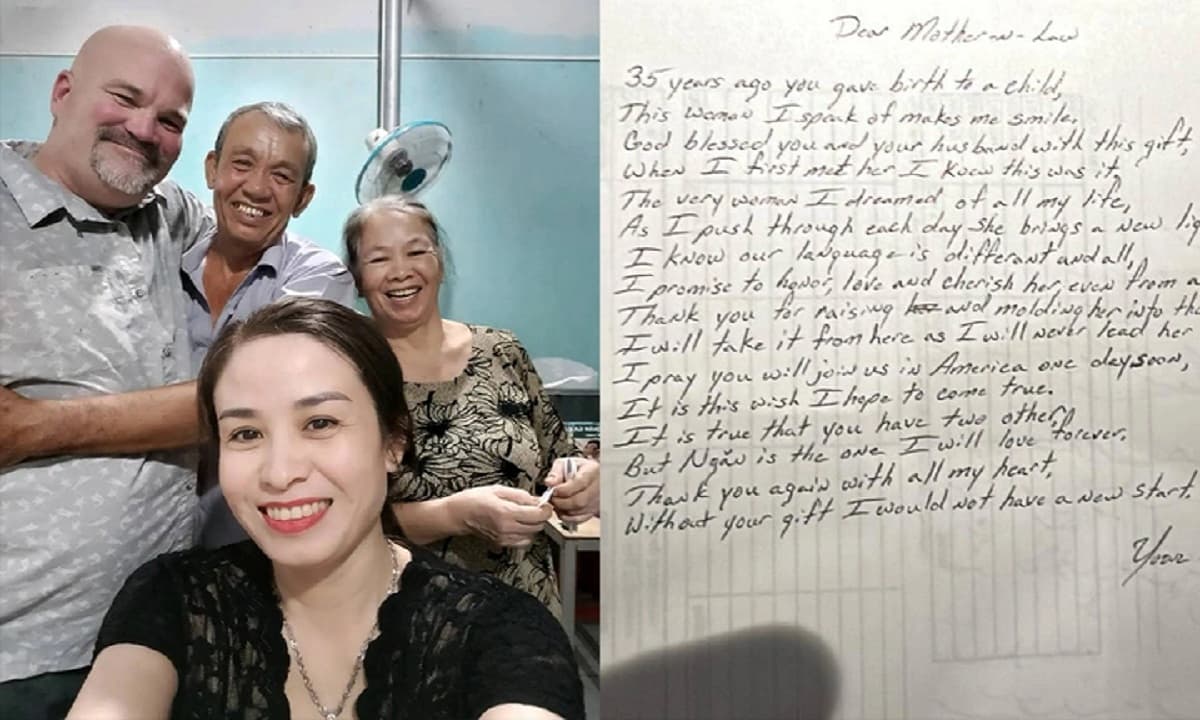 Dear Mother-n-Law
35 years ago you gave birth to a child,
This woman I speak of makes me smile.
God blessed you and your husband with this gift,
When I first met her I knew this was it,
The very woman I dreamed of all my life,
As I push through each day she brings a new lig
I know our language is different and all,
I promise to honor, love and cherish her, even from a
Thank you for raising and molding her into th
I will take it from here as I will never lead her
I pray you will join us in America one day soon,
It is this wish I hope to come true.
It is true that you have two other,
But Ngân is the one I will love forever.
Thank you again with all my heart,
Without your gift I would not have a new start.
Your